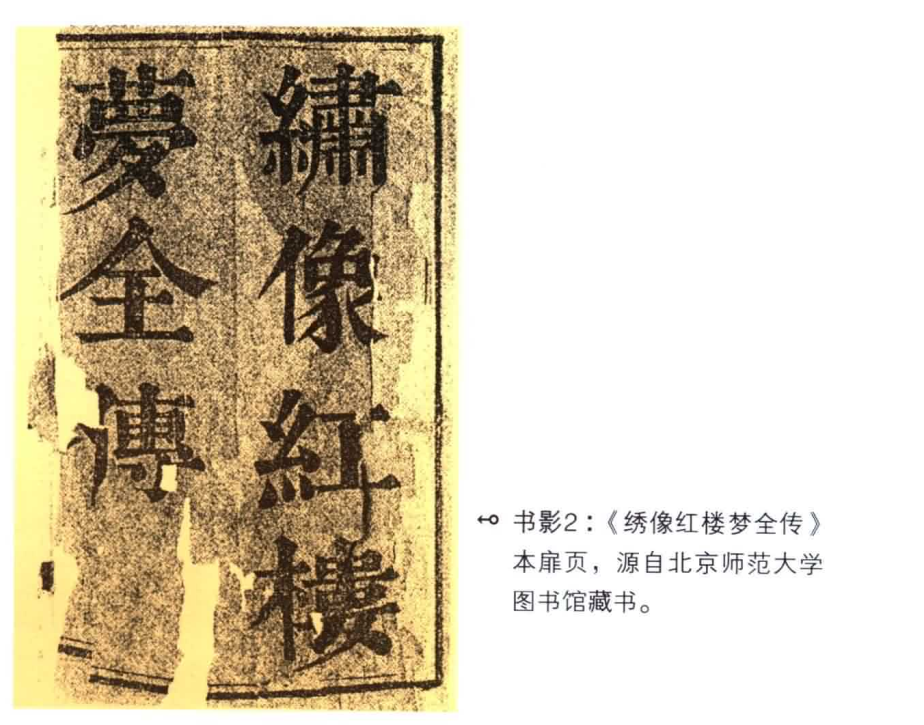 繡像紅樓
夢全傳
书影2：《绣像红楼梦全传》
本扉页，源自北京师范大学
图书馆藏书。